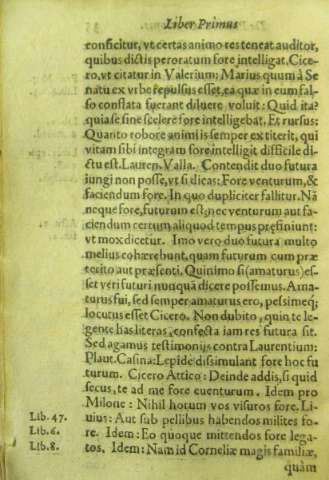 Liber Primus
conficitur, vt certas animo res teneat auditor,
quibus dictis peroratum fore intelligat. Cice-
ro, vt citatur in Valerium; Marius quum à Se
natu ex vrbe repulsus esset, ea quæ in eum fal-
so conflata fuerant diluere voluit: Quid ita?
quia se sine scelere fore intelligebat. Et rursus:
Quanto robore animi is semper extiterit, qui
vitam sibi integram fore intelligit difficile di-
ctu est. Lauren. Valla. Contendit duo futura
iungi non posse, vt si dicas: Fore venturum, &
faciendum fore. In quo dupliciter fallitur. Nã
neque fore, futurum est; nec venturum aut fa-
ciendum certum aliquod tempus præfiniunt:
vt mox dicetur. Imo vero duo futura multo
melius cohærebunt, quam futurum cum præ
terito aut præsenti. Quinimo si (amaturus) es-
set veri futuri nunquã dicere possemus. Ama-
turus fui, sed semper amaturus ero, pessimeq;
locutus esset Cicero. Non dubito, quin te le-
gente has literas, confecta iam res futura sit.
Sed agamus testimonijs contra Laurentium:
Plaut. Casina: Lepide dissimulant fore hoc fu
turum. Cicero Attico: Deinde addis, si quid
secus, te ad me fore euenturum. Idem pro
Milone: Nihil horum vos visuros fore. Li-
Lib. 47. uius: Aut sub pellibus habendos milites fo-
Lib. 6. re. Idem: Eo quoque mittendos fore lega-
Lib. 8. tos. Idem: Nam id Corneliæ magis familiæ,
quàm